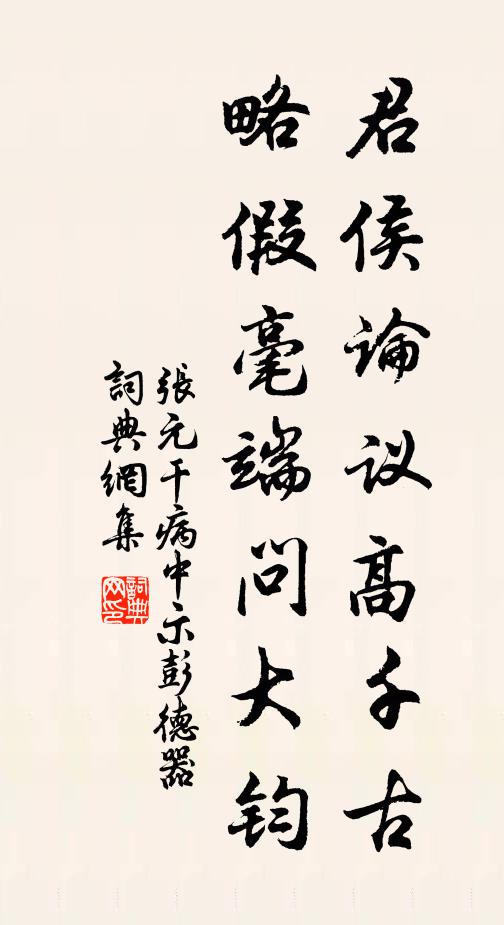 君侯論议高千古
略假毫端問大钧
張元干病中示彭德器
詞典網集
詞典网印